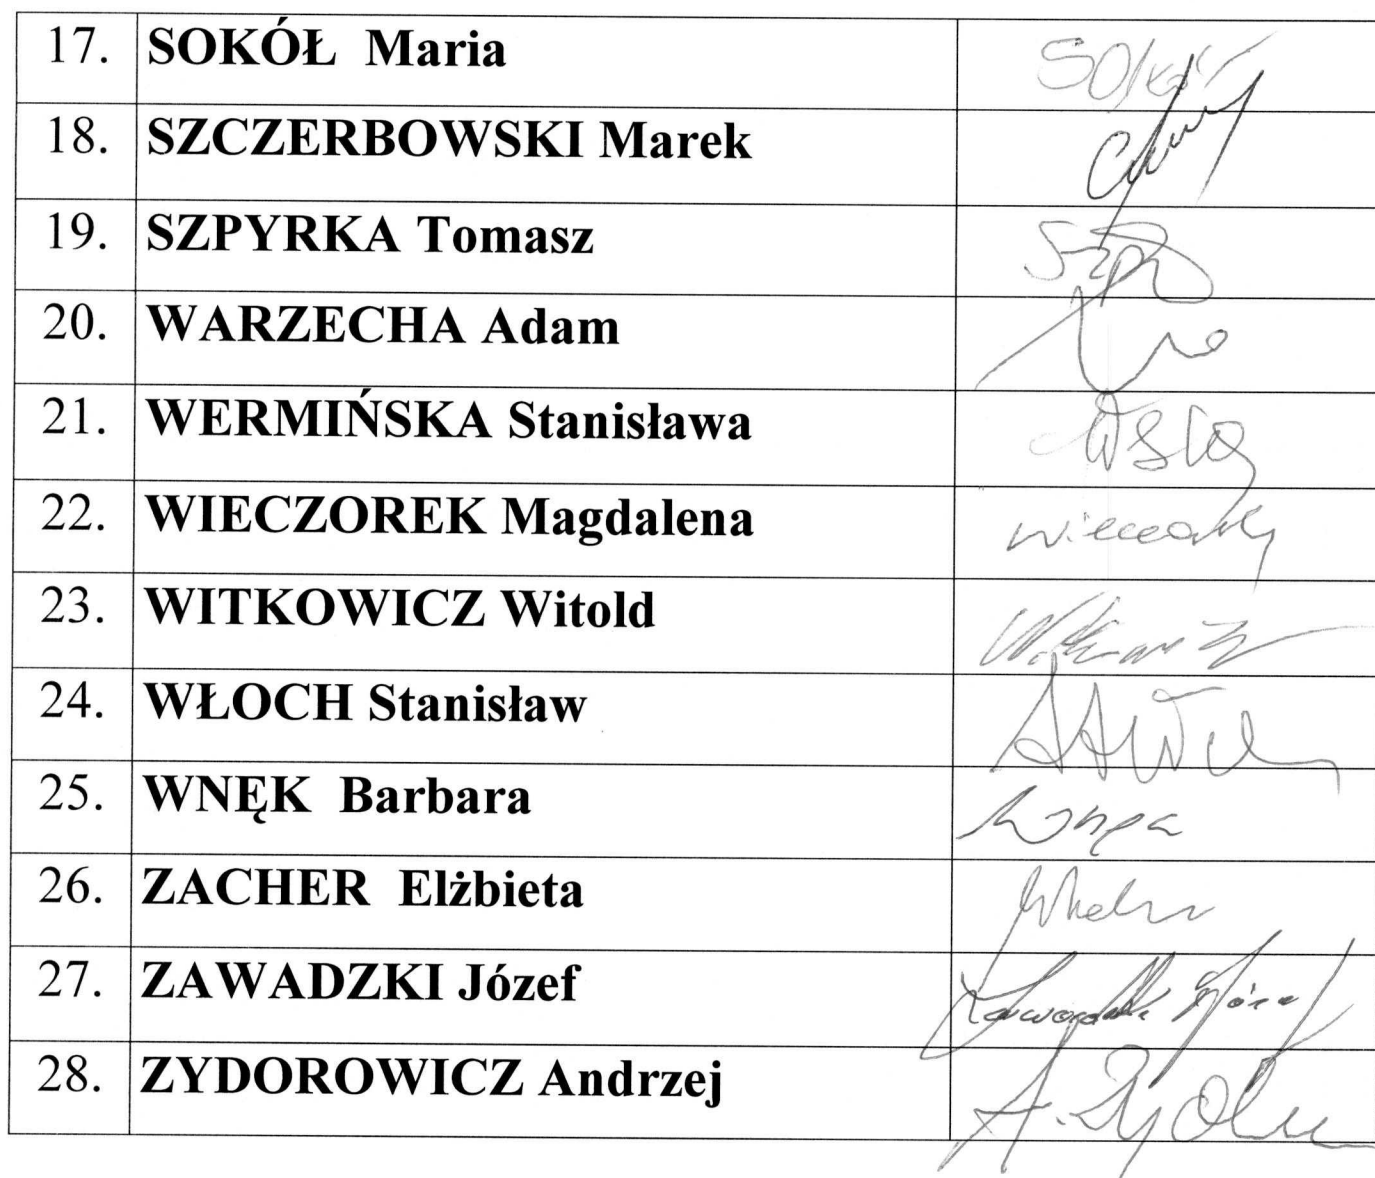 17. SOKÓŁ Maria Sokół
18. SZCZERBOWSKI Marek
19. SZPYRKA Tomasz
20. WARZECHA Adam
21. WERMIŃSKA Stanisława
22. WIECZOREK Magdalena
23. WITKOWICZ Witold
24. WŁOCH Stanisław
25. WNĘK Barbara
26. ZACHER Elżbieta
27. ZAWADZKI Józef
28. ZYDOROWICZ Andrzej